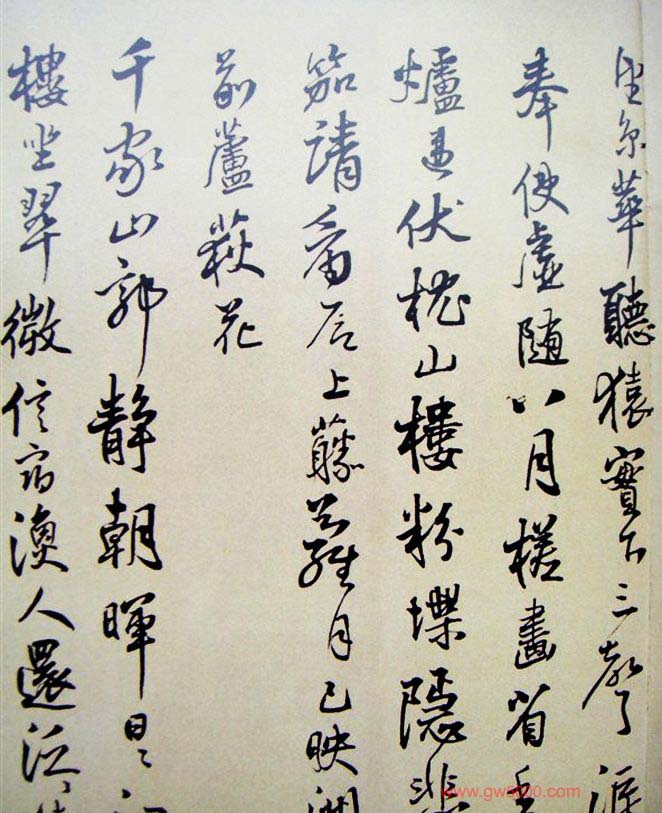 望京華聽猿實下三聲淚
奉使虛隨八月槎畫省香
爐違伏枕山樓粉堞隱悲
笳請看石上藤蘿月已映洲
前蘆荻花
千家山郭靜朝暉日〻江
樓坐翠微信宿漁人還泛〻